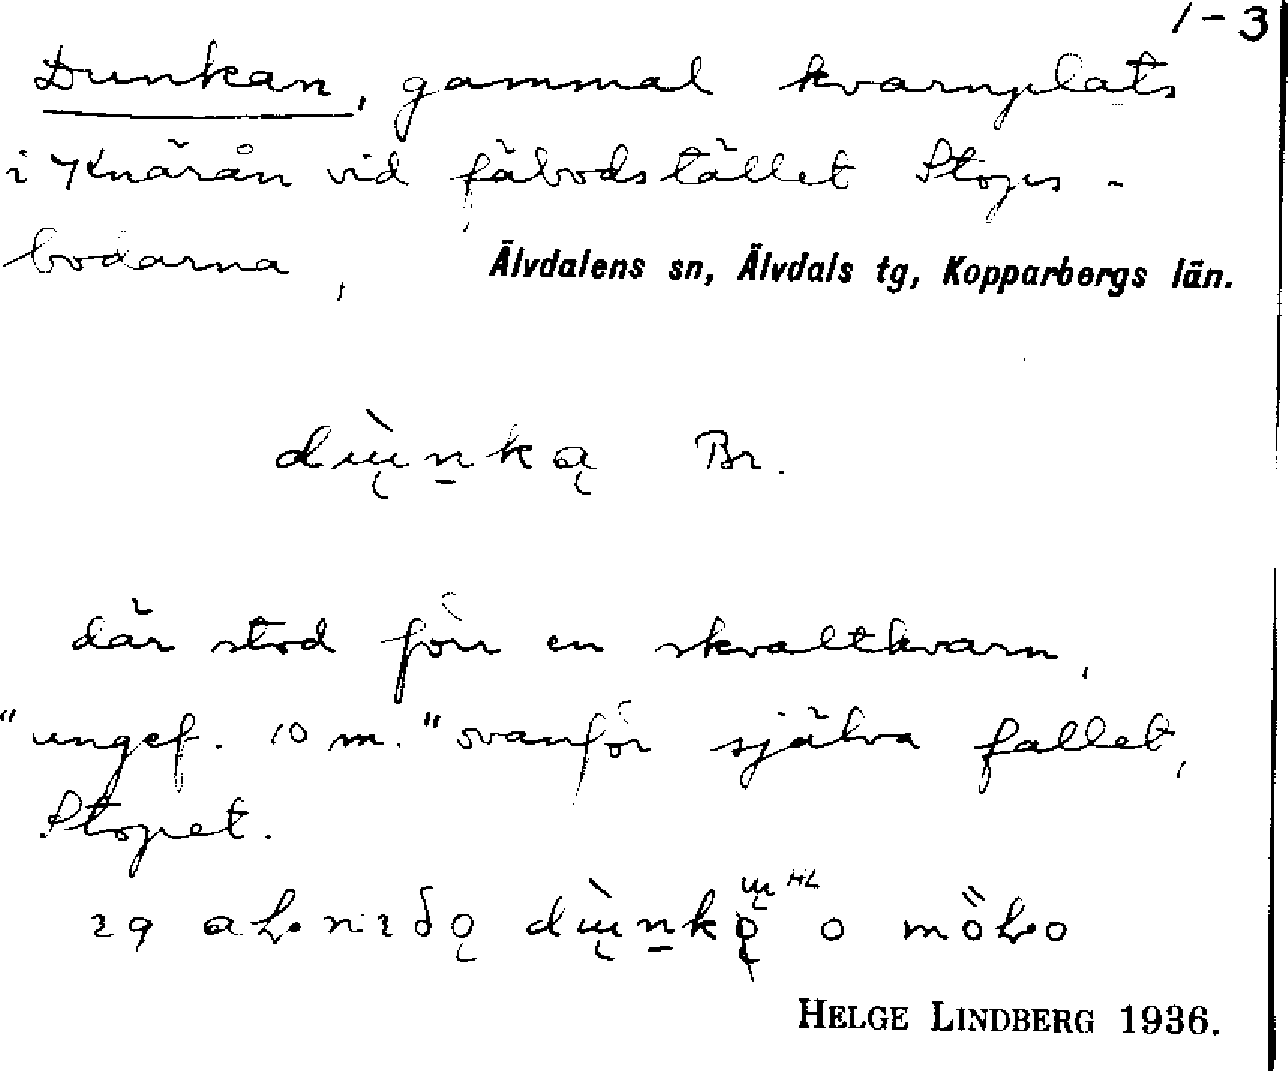 1-3
Dunkan, gammal kvarnplats
i Knärån vid fäbodstället Stops-
bodarna, Älvdalens sn, Älvdals tg, Kopparbergs län.
Br.
där stod förr en skvaltkvarn,
"ungef. 10 m." ovanför själva fallet,
Stopet.
HL
HELGE LINDBERG 1936.